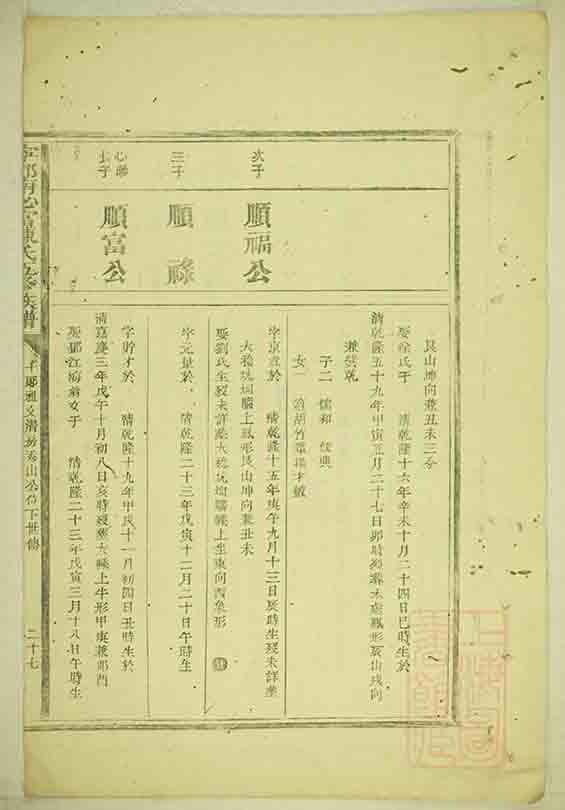 艮山坤向兼丑未三分
娶徐氏于 清乾隆十六年辛未十月二十四日巳時生於
清乾隆五十九年甲寅五月二十七日卯時歿葬木 鳳形辰山戌向
兼巽乾
子二 儒和 儒典
女一 適胡竹
次子
順福公
字京 於 清乾隆十五年庚午九月十三日辰時生歿未詳葬
大 坑坳腦上鳳形艮山坤向兼丑未
娶劉氏生歿未詳葬大 坑坳腦 上坐東向西象形
三子
順祿
字元量於 清乾隆二十三年戊寅十二月二十日午時生
心 長子
順富公
字貯才於 清乾隆十九年甲戌十一月初四日丑時生於
清嘉慶三年戊午十月初八日亥時歿葬大 上牛形甲庚兼卯酉
娶鄧江梅翁女于 清乾隆二十三年戊寅三月十八日午時生
陳氏 族譜
山公位下世傳
二十七